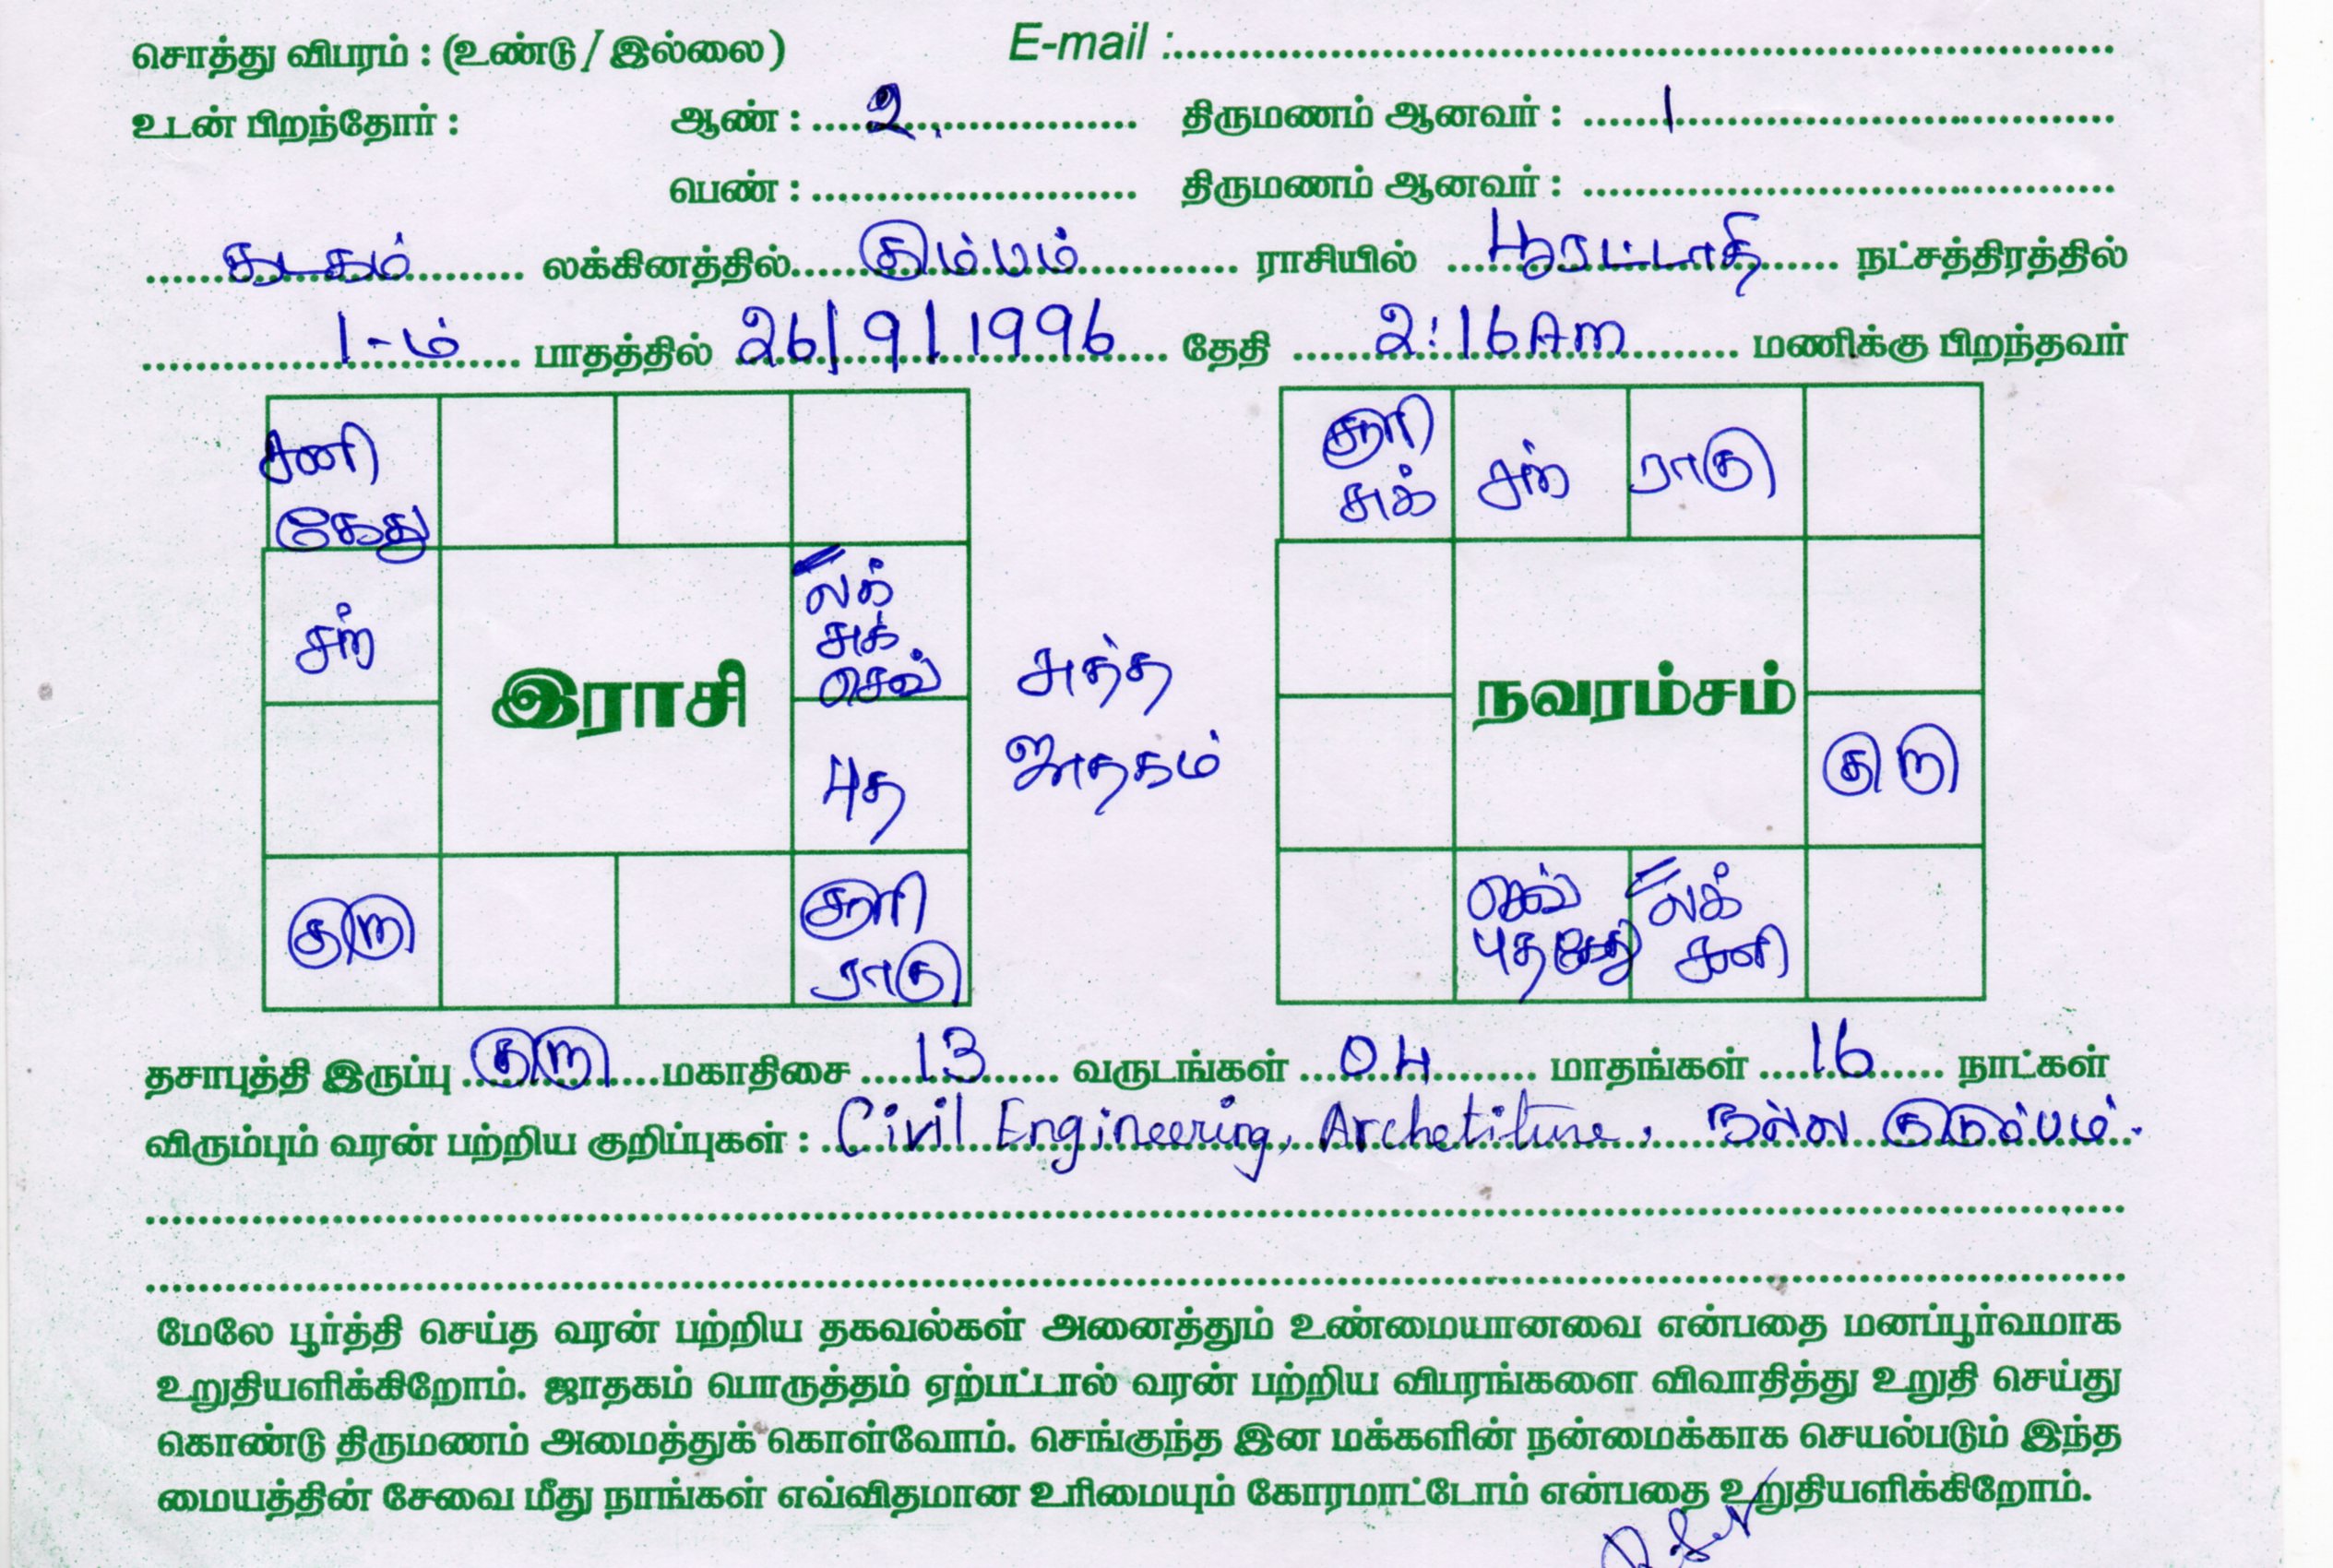 சொத்து விபரம் : (உண்டு / இல்லை) E-mail :
உடன் பிறந்தோர் : ஆண் : 2 திருமணம் ஆனவர் : 1
பெண் : திருமணம் ஆனவர் :
கடகம் லக்கினத்தில் கும்பம் ராசியில் பூரட்டாதி நட்சத்திரத்தில்
1-ம் பாதத்தில் 26/9/1996 தேதி 2:16 Am மணிக்கு பிறந்தவர்
சனி
கேது
சந்
லக்
சுக்
செவ்
இராசி
புத
குரு
சூரி
ராகு
சுத்த
ஜாதகம்
சூரி
சுக்
சந்
ராகு
நவரம்சம்
குரு
செவ்
புத கேது
லக்
சனி
தசாபுத்தி இருப்பு குரு மகாதிசை 13 வருடங்கள் 04 மாதங்கள் 16 நாட்கள்
விரும்பும் வரன் பற்றிய குறிப்புகள் : Civil Engineering, Archetiture. நல்ல குடும்பம்.
மேலே பூர்த்தி செய்த வரன் பற்றிய தகவல்கள் அனைத்தும் உண்மையானவை என்பதை மனப்பூர்வமாக
உறுதியளிக்கிறோம். ஜாதகம் பொருத்தம் ஏற்பட்டால் வரன் பற்றிய விபரங்களை விவாதித்து உறுதி செய்து
கொண்டு திருமணம் அமைத்துக் கொள்வோம். செங்குந்த இன மக்களின் நன்மைக்காக செயல்படும் இந்த
மையத்தின் சேவை மீது நாங்கள் எவ்விதமான உரிமையும் கோரமாட்டோம் என்பதை உறுதியளிக்கிறோம்.